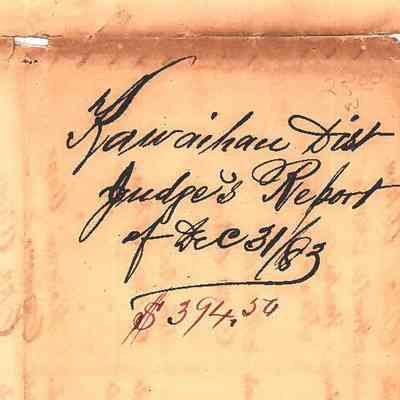 Kawaihau Dist
Judge's Report
of Dec 31/83
$ 394.50